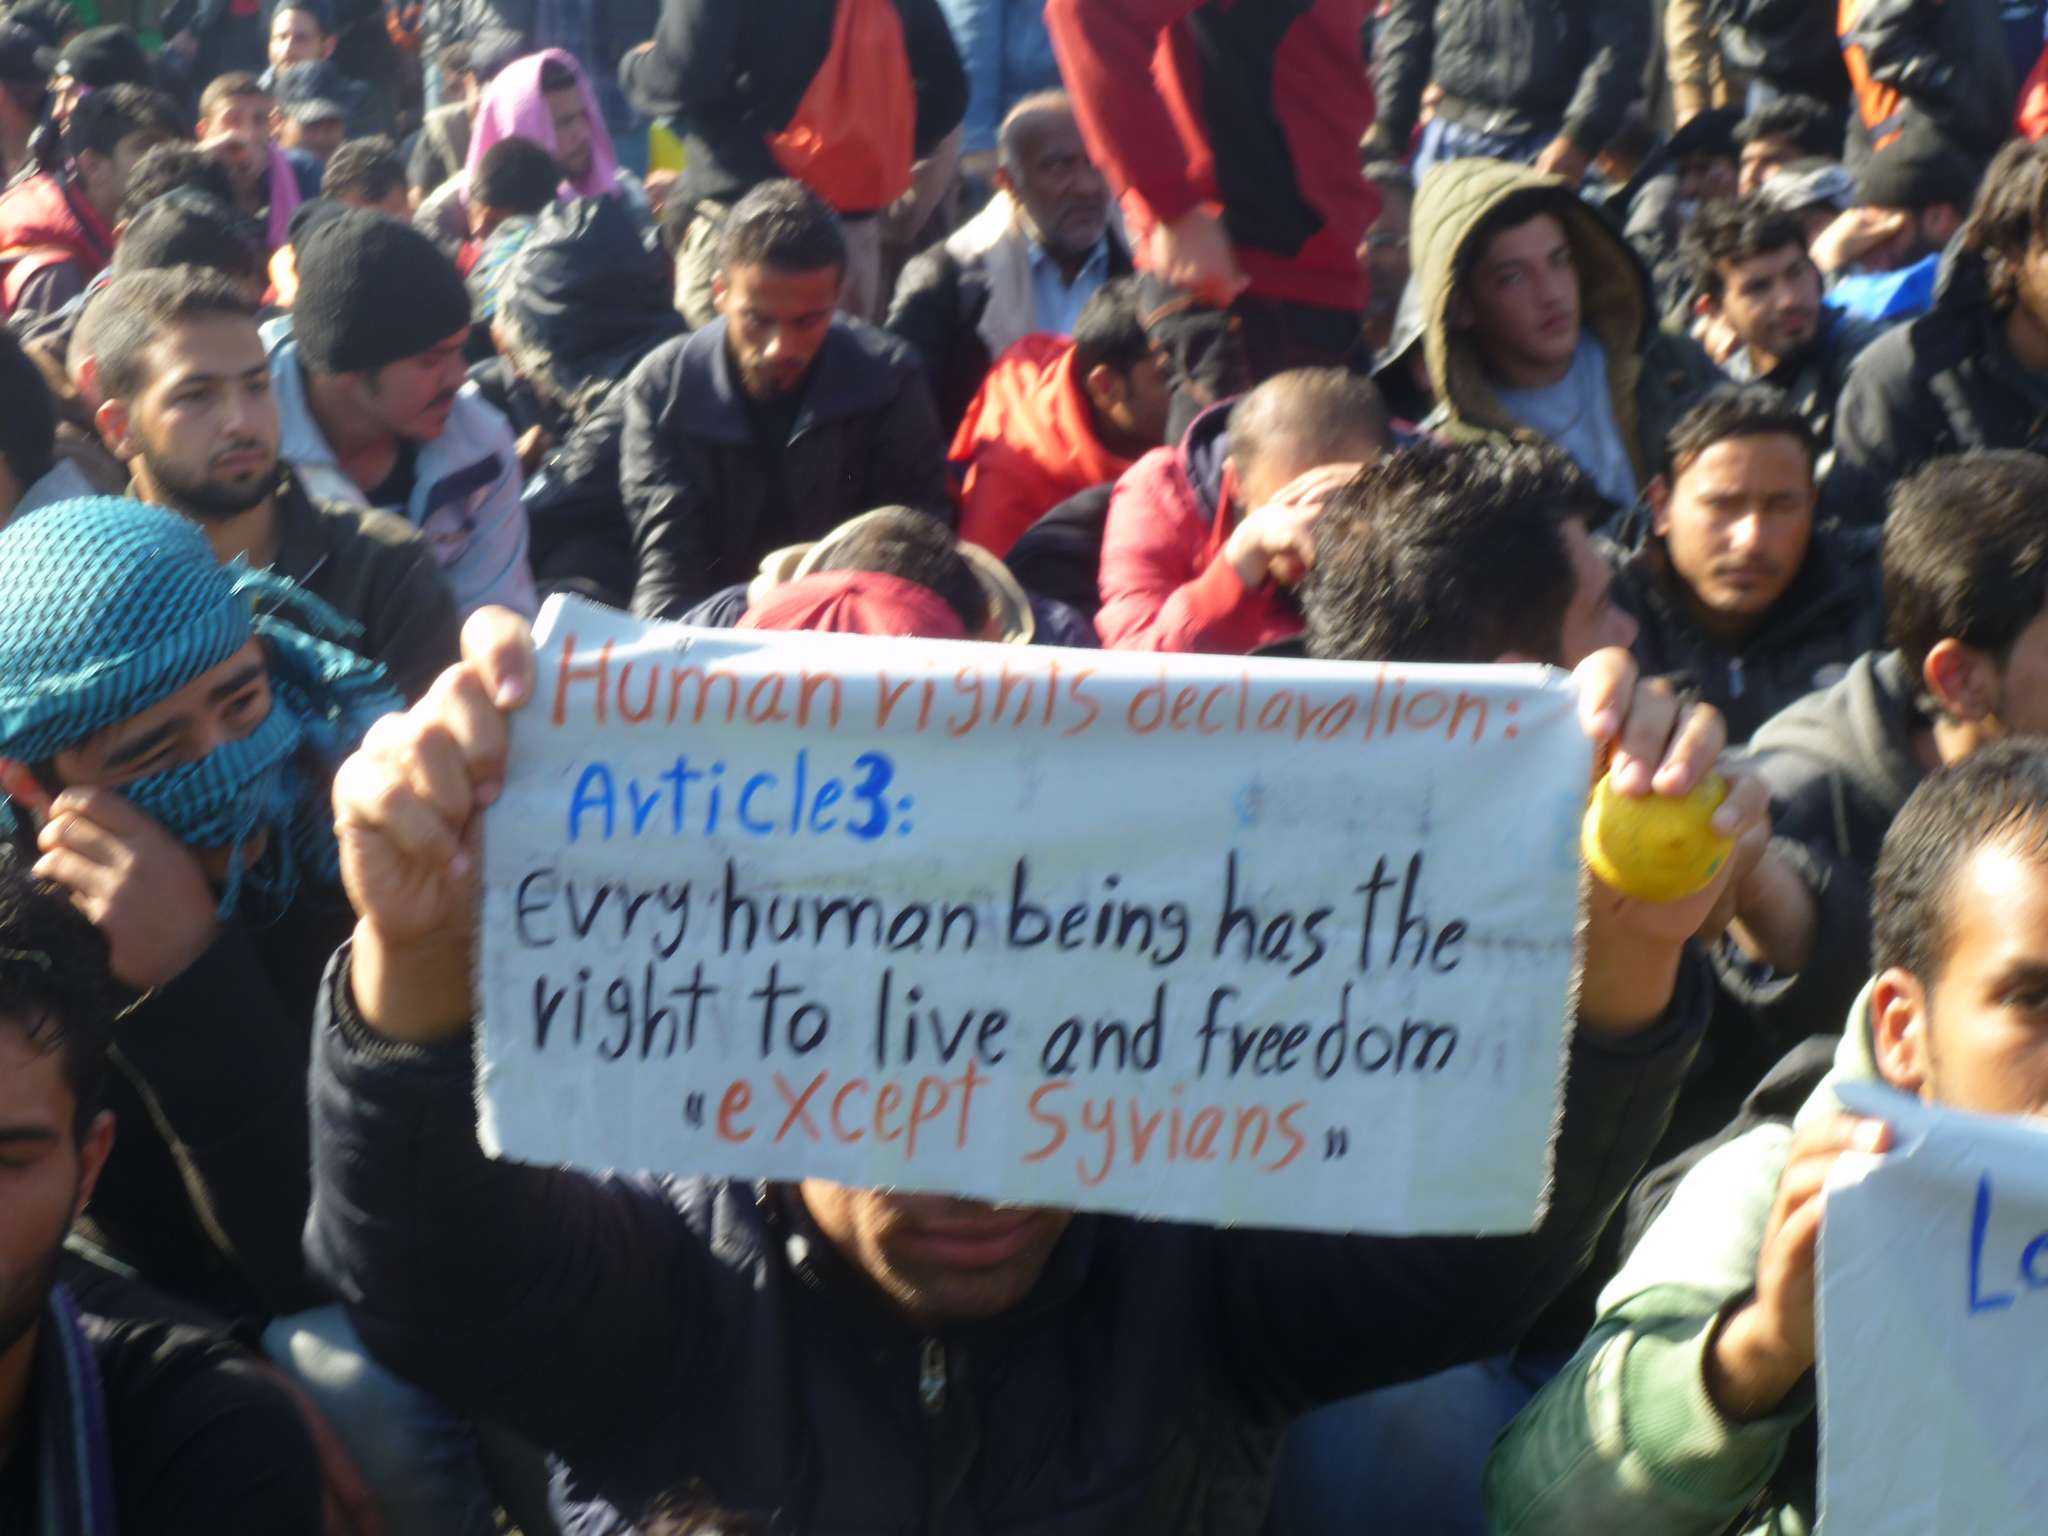 Human rights declaration:
Article3:
Evry human being has the
right to live and freedom
"except Syrians"
Lo